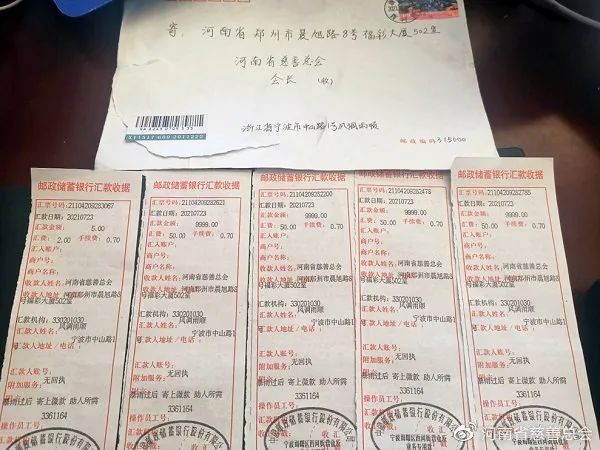 寄: 河南省郑州市晨旭路8号福彩大厦502室
河南省慈善总会
会长 (收)
浙江省宁波市中山路1号风调雨顺
邮政编码 315000
邮政储蓄银行汇款收据
汇票号码:21104209283067
汇款日期:20210723
汇款金额: 5.00
汇费: 2.00 手续费: 0.70
汇入账户:
商户号:
商户名称:
收款人姓名:河南省慈善总会
收款人地址:河南郑州市晨旭路8
号福彩大厦502室
汇款机构: 330201030
汇款人姓名: 风调雨顺
汇款人地址/电话: 宁波市中山路1
号
汇款人账号:
附加服务: 无回执
暴雨过后 寄上微款 助人所需
操作员工号: 3361164
邮政储蓄银行汇款收据
汇票号码:21104209282621
汇款日期:20210723
汇款金额: 9999.00
汇费: 50.00 手续费: 0.70
汇入账户:
商户号:
商户名称:
收款人姓名:河南省慈善总会
收款人地址:河南郑州市晨旭路8
号福彩大厦502室
汇款机构: 330201030
汇款人姓名: 风调雨顺
汇款人地址/电话: 宁波市中山路1
号
汇款人账号:
附加服务: 无回执
暴雨过后 寄上微款 助人所需
操作员工号: 3361164
邮政储蓄银行汇款收据
汇票号码:21104209282200
汇款日期:20210723
汇款金额: 9999.00
汇费: 50.00 手续费: 0.70
汇入账户:
商户号:
商户名称:
收款人姓名:河南省慈善总会
收款人地址:河南郑州市晨旭路8
号福彩大厦502室
汇款机构: 330201030
汇款人姓名: 风调雨顺
汇款人地址/电话: 宁波市中山路1
号
汇款人账号:
附加服务: 无回执
暴雨过后 寄上微款 助人所需
操作员工号: 3361164
邮政储蓄银行汇款收据
汇票号码:21104209282478
汇款日期:20210723
汇款金额: 9999.00
汇费: 50.00 手续费: 0.70
汇入账户:
商户号:
商户名称:
收款人姓名:河南省慈善总会
收款人地址:河南郑州市晨旭路8
号福彩大厦502室
汇款机构: 330201030
汇款人姓名: 风调雨顺
汇款人地址/电话: 宁波市中山路1
号
汇款人账号:
附加服务: 无回执
暴雨过后 寄上微款 助人所需
操作员工号: 3361164
邮政储蓄银行汇款收据
汇票号码:21104209282785
汇款日期:20210723
汇款金额: 9999.00
汇费: 50.00 手续费: 0.70
汇入账户:
商户号:
商户名称:
收款人姓名:河南省慈善总会
收款人地址:河南郑州市晨旭路8
号福彩大厦502室
汇款机构: 330201030
汇款人姓名: 风调雨顺
汇款人地址/电话: 宁波市中山路1
号
汇款人账号:
附加服务: 无回执
暴雨过后 寄上微款 助人所需
操作员工号: 3361164
@河南省慈善总会